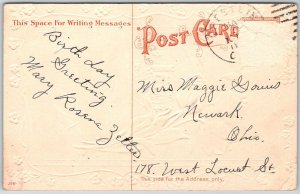 This Space for Writing Messages
POST CARD
Birth day
Greeting
Mary Rosena Zeller
Miss Maggie Gouis
Newark.
Ohio.
178. West Locust St.
This side for the Address, only.